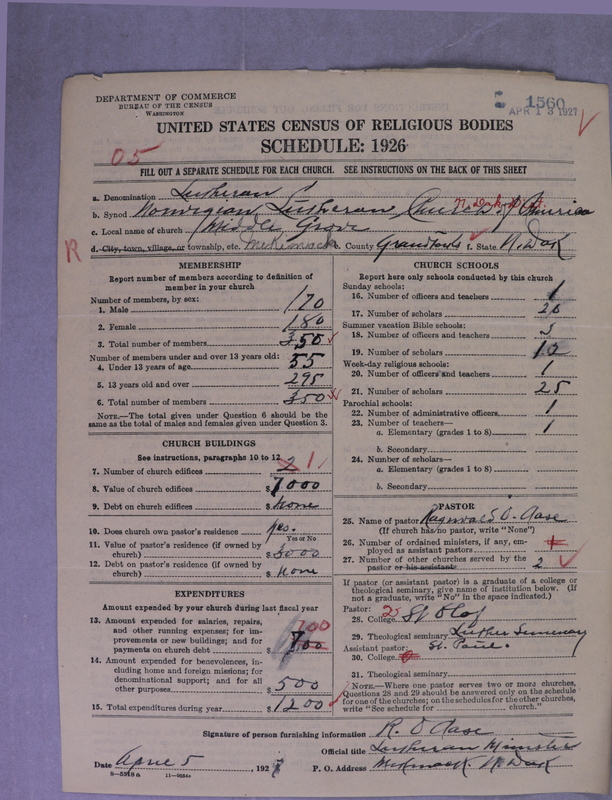 DEPARTMENT OF COMMERCE
BUREAU OF THE CENSUS
WASHINGTON
1560
APR 13 1927
UNITED STATES CENSUS OF RELIGIOUS BODIES
SCHEDULE: 1926
05
FILL OUT A SEPARATE SCHEDULE FOR EACH CHURCH. SEE INSTRUCTIONS ON THE BACK OF THIS SHEET
a. Denomination Lutheran
b. Synod Norwegian Lutheran Church of America
c. Local name of church Middle Grove
R
d. City, town, village, or township, etc. Mekinock e. County Grand Forks f. State N. Dak
MEMBERSHIP
Report number of members according to definition of
member in your church
Number of members, by sex:
1. Male 170
2. Female 180
3. Total number of members 350
Number of members under and over 13 years old:
4. Under 13 years of age 55
5. 13 years old and over 295
6. Total number of members 350
NOTE.—The total given under Question 6 should be
same as the total of males and females given under Question 3.
CHURCH BUILDINGS
See instructions, paragraphs 10 to 12
7. Number of church edifices 2 1
8. Value of church edifices $ 7000
9. Debt on church edifices $ None
10. Does church own pastor's residence? Yes.
Yes or No
11. Value of pastor's residence (if owned by
church) $ 5000
12. Debt on pastor's residence (if owned by
church) $ None
EXPENDITURES
Amount expended by your church during last fiscal year
13. Amount expended for salaries, repairs,
and other running expenses; for im-
provements or new buildings; and for
payments on church debt $ 700
700
14. Amount expended for benevolences, in-
cluding home and foreign missions; for
denominational support; and for all
other purposes $ 500
15. Total expenditures during year $ 1200
CHURCH SCHOOLS
Report here only schools conducted by this church
Sunday schools:
16. Number of officers and teachers 1
17. Number of scholars
Summer vacation Bible schools:
18. Number of officers and teachers
19. Number of scholars
Week-day religious schools:
20. Number of officers and teachers 1
21. Number of scholars 25
Parochial schools:
22. Number of administrative officers 1
23. Number of teachers—
a. Elementary (grades 1 to 8) 1
b. Secondary
24. Number of scholars—
a. Elementary (grades 1 to 8)
b. Secondary
PASTOR
25. Name of pastor Ragnvald O. Aase
(If church has no pastor, write "None")
26. Number of ordained ministers, if any, em-
ployed as assistant pastors
27. Number of other churches served by the
pastor or his assistants 2
If pastor (or assistant pastor) is a graduate of a college or
theological seminary, give name of institution below. (If
not a graduate, write "No" in the space indicated.)
Pastor:
28. College St Olaf
29. Theological seminary Luther Seminary
Assistant pastor: St. Paul.
30. College
31. Theological seminary
NOTE.—Where one pastor serves two or more churches,
Questions 28 and 29 should be answered only on the schedule
for one of the churches; on the schedules for the other churches,
write "See schedule for church."
Signature of person furnishing information R. O Aase
Official title Lutheran Minister
Date April 5, 1927 P. O. Address Mekinock N Dak
8—5518a 11—9084